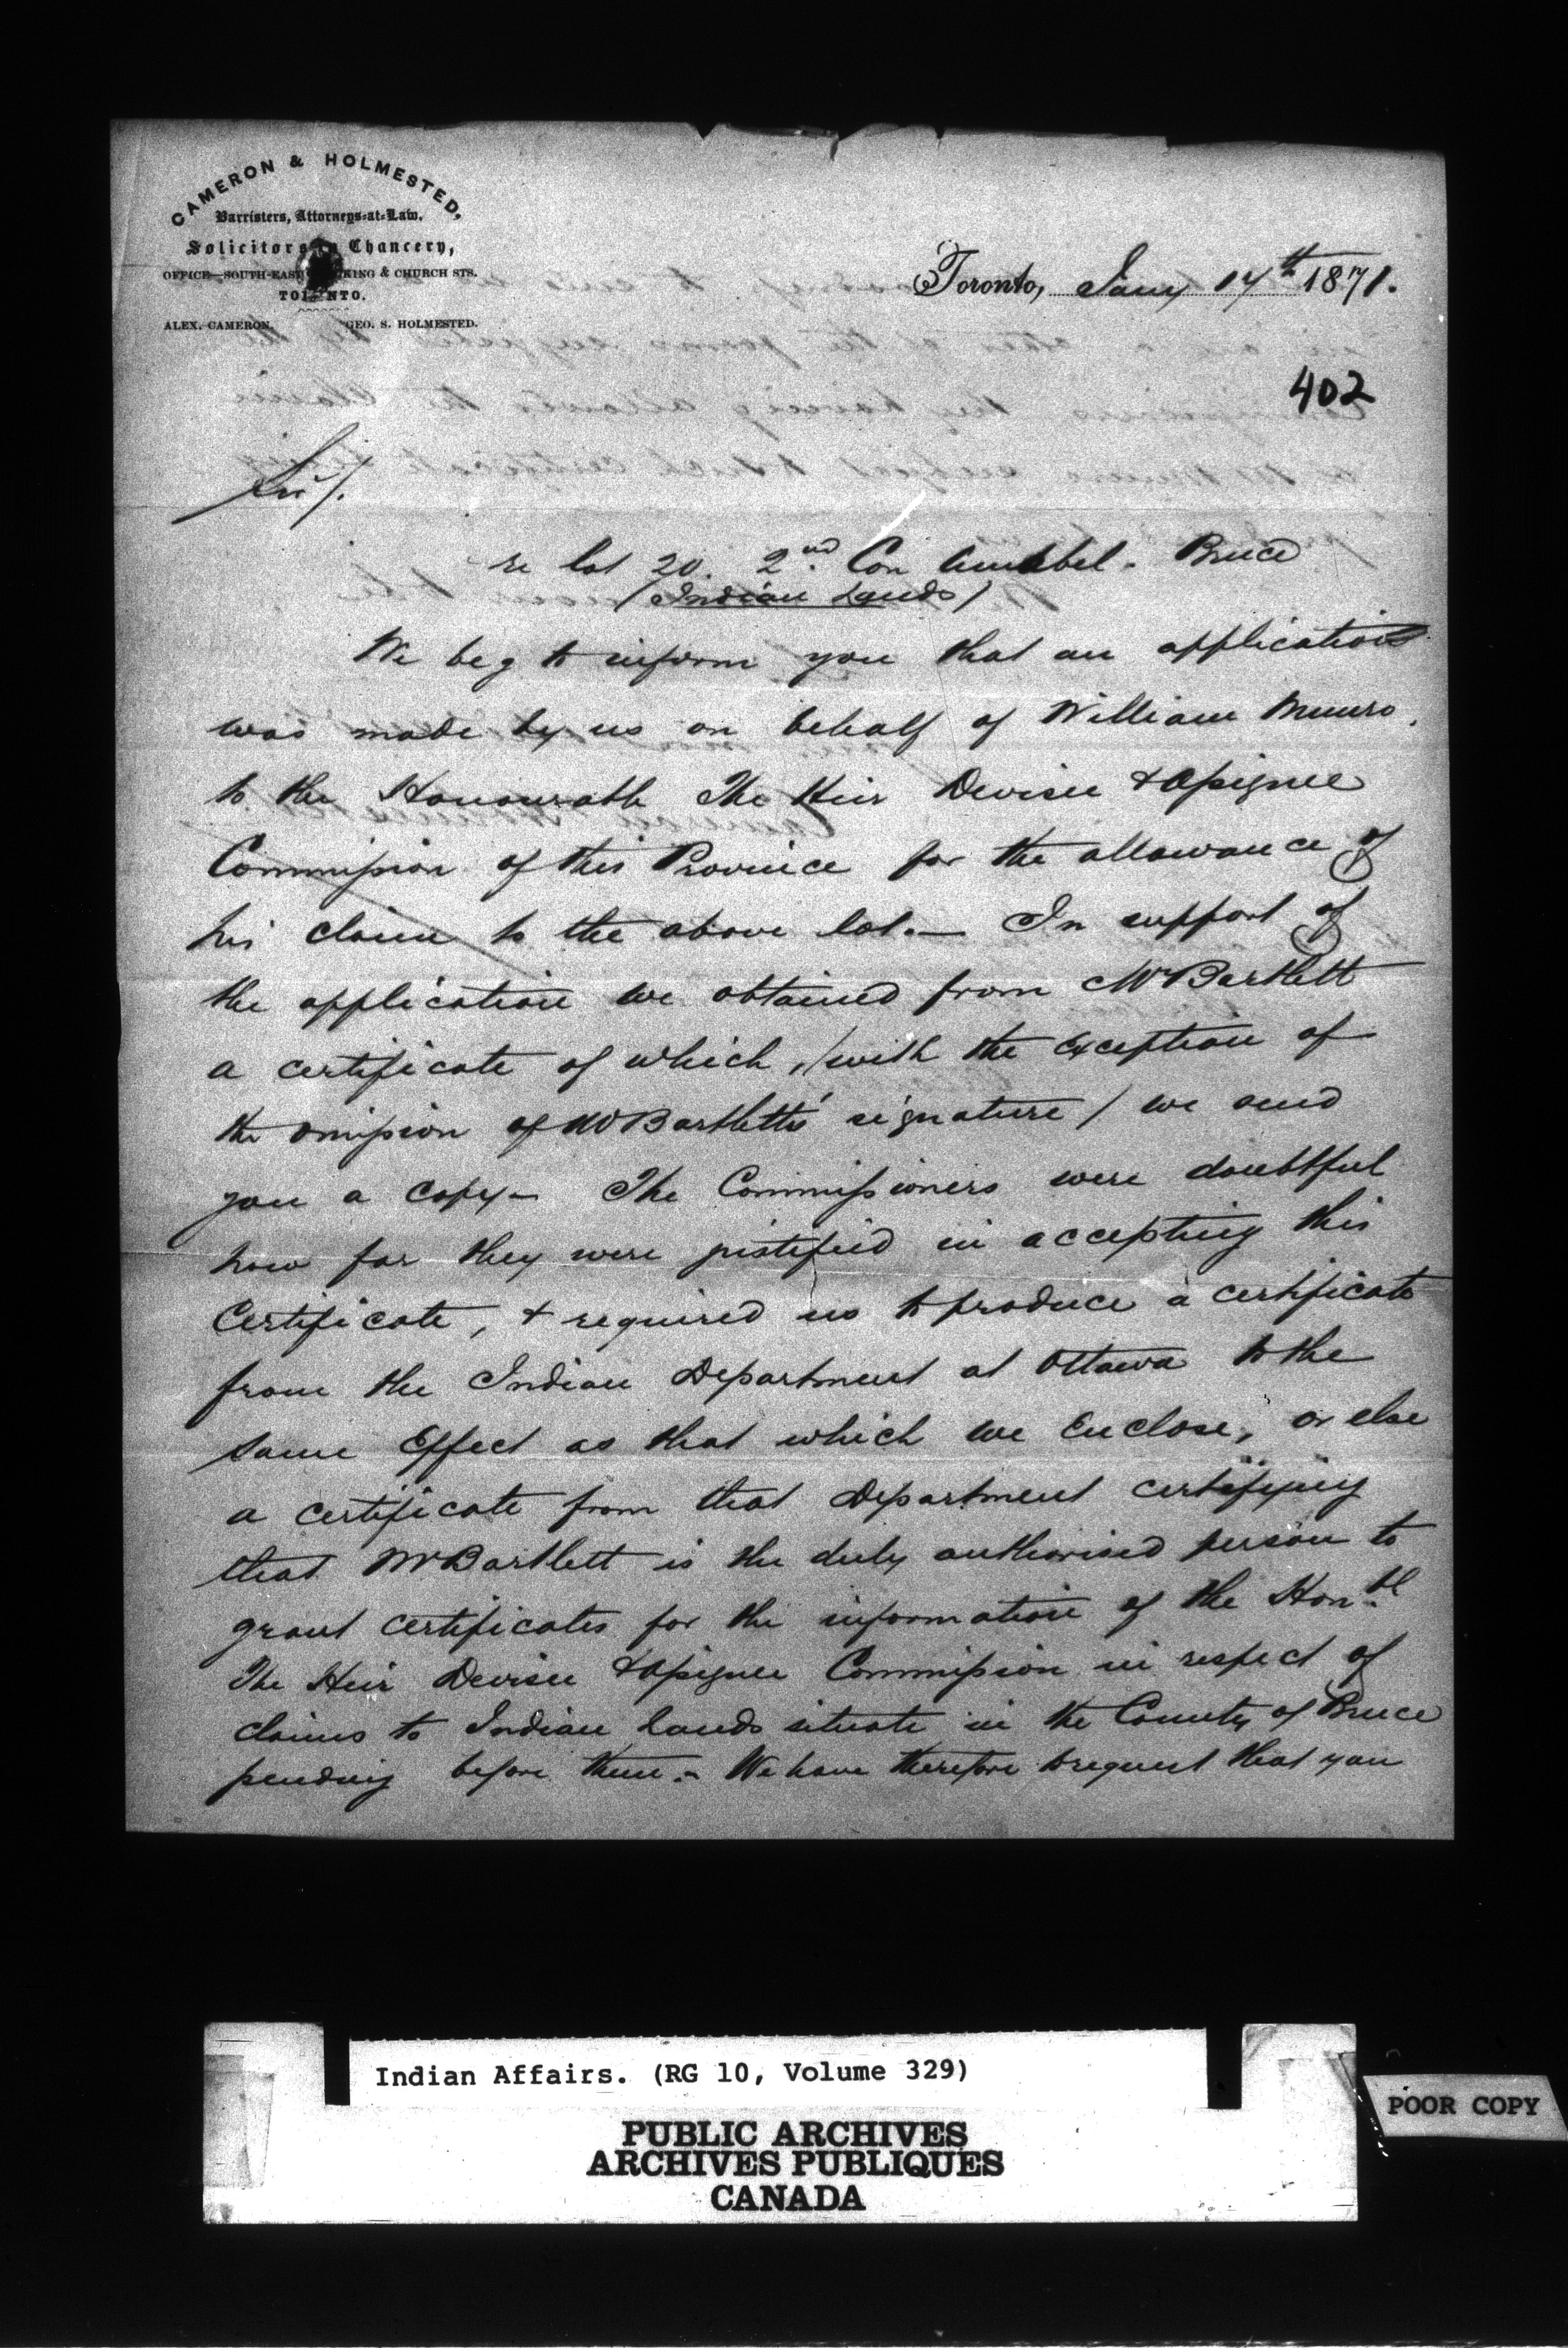 CAMERON & HOLMESTED,
Barristers, Attorneys-at-Law,
Solicitors in Chancery,
OFFICE—SOUTH-EAST KING & CHURCH STS.
TORONTO.
ALEX. CAMERON. GEO. S. HOLMESTED.
Toronto, Jany 17th 1871.
402
Sir/.
re lot 20. 2nd. Con Amabel. Bruce
(Indian Lands)
We beg to inform you that an application
was made by us on behalf of William Munro.
to the Honourable The Heir Devisee & Assignee
Commission of this Province for the allowance of
his claim to the above lot.— In support of
the application we obtained from Mr Bartlett
a certificate of which, /with the exception of
the omission of Mr Bartletts' signature/ we send
you a copy— The Commissioners were doubtful
how far they were justified in accepting this
Certificate, & required us to produce a certificate
from the Indian Department at Ottawa to the
same Effect as that which we Enclose, or else
a certificate from that Department certifying
that Mr Bartlett is the duly authorised person to
grant certificates for the information of the Honble
The Heir Devisee & Assignee Commission in respect of
claims to Indian lands situate in the County of Bruce
pending before them.— We have therefore to request that you
Indian Affairs. (RG 10, Volume 329)
PUBLIC ARCHIVES
ARCHIVES PUBLIQUES
CANADA
POOR COPY